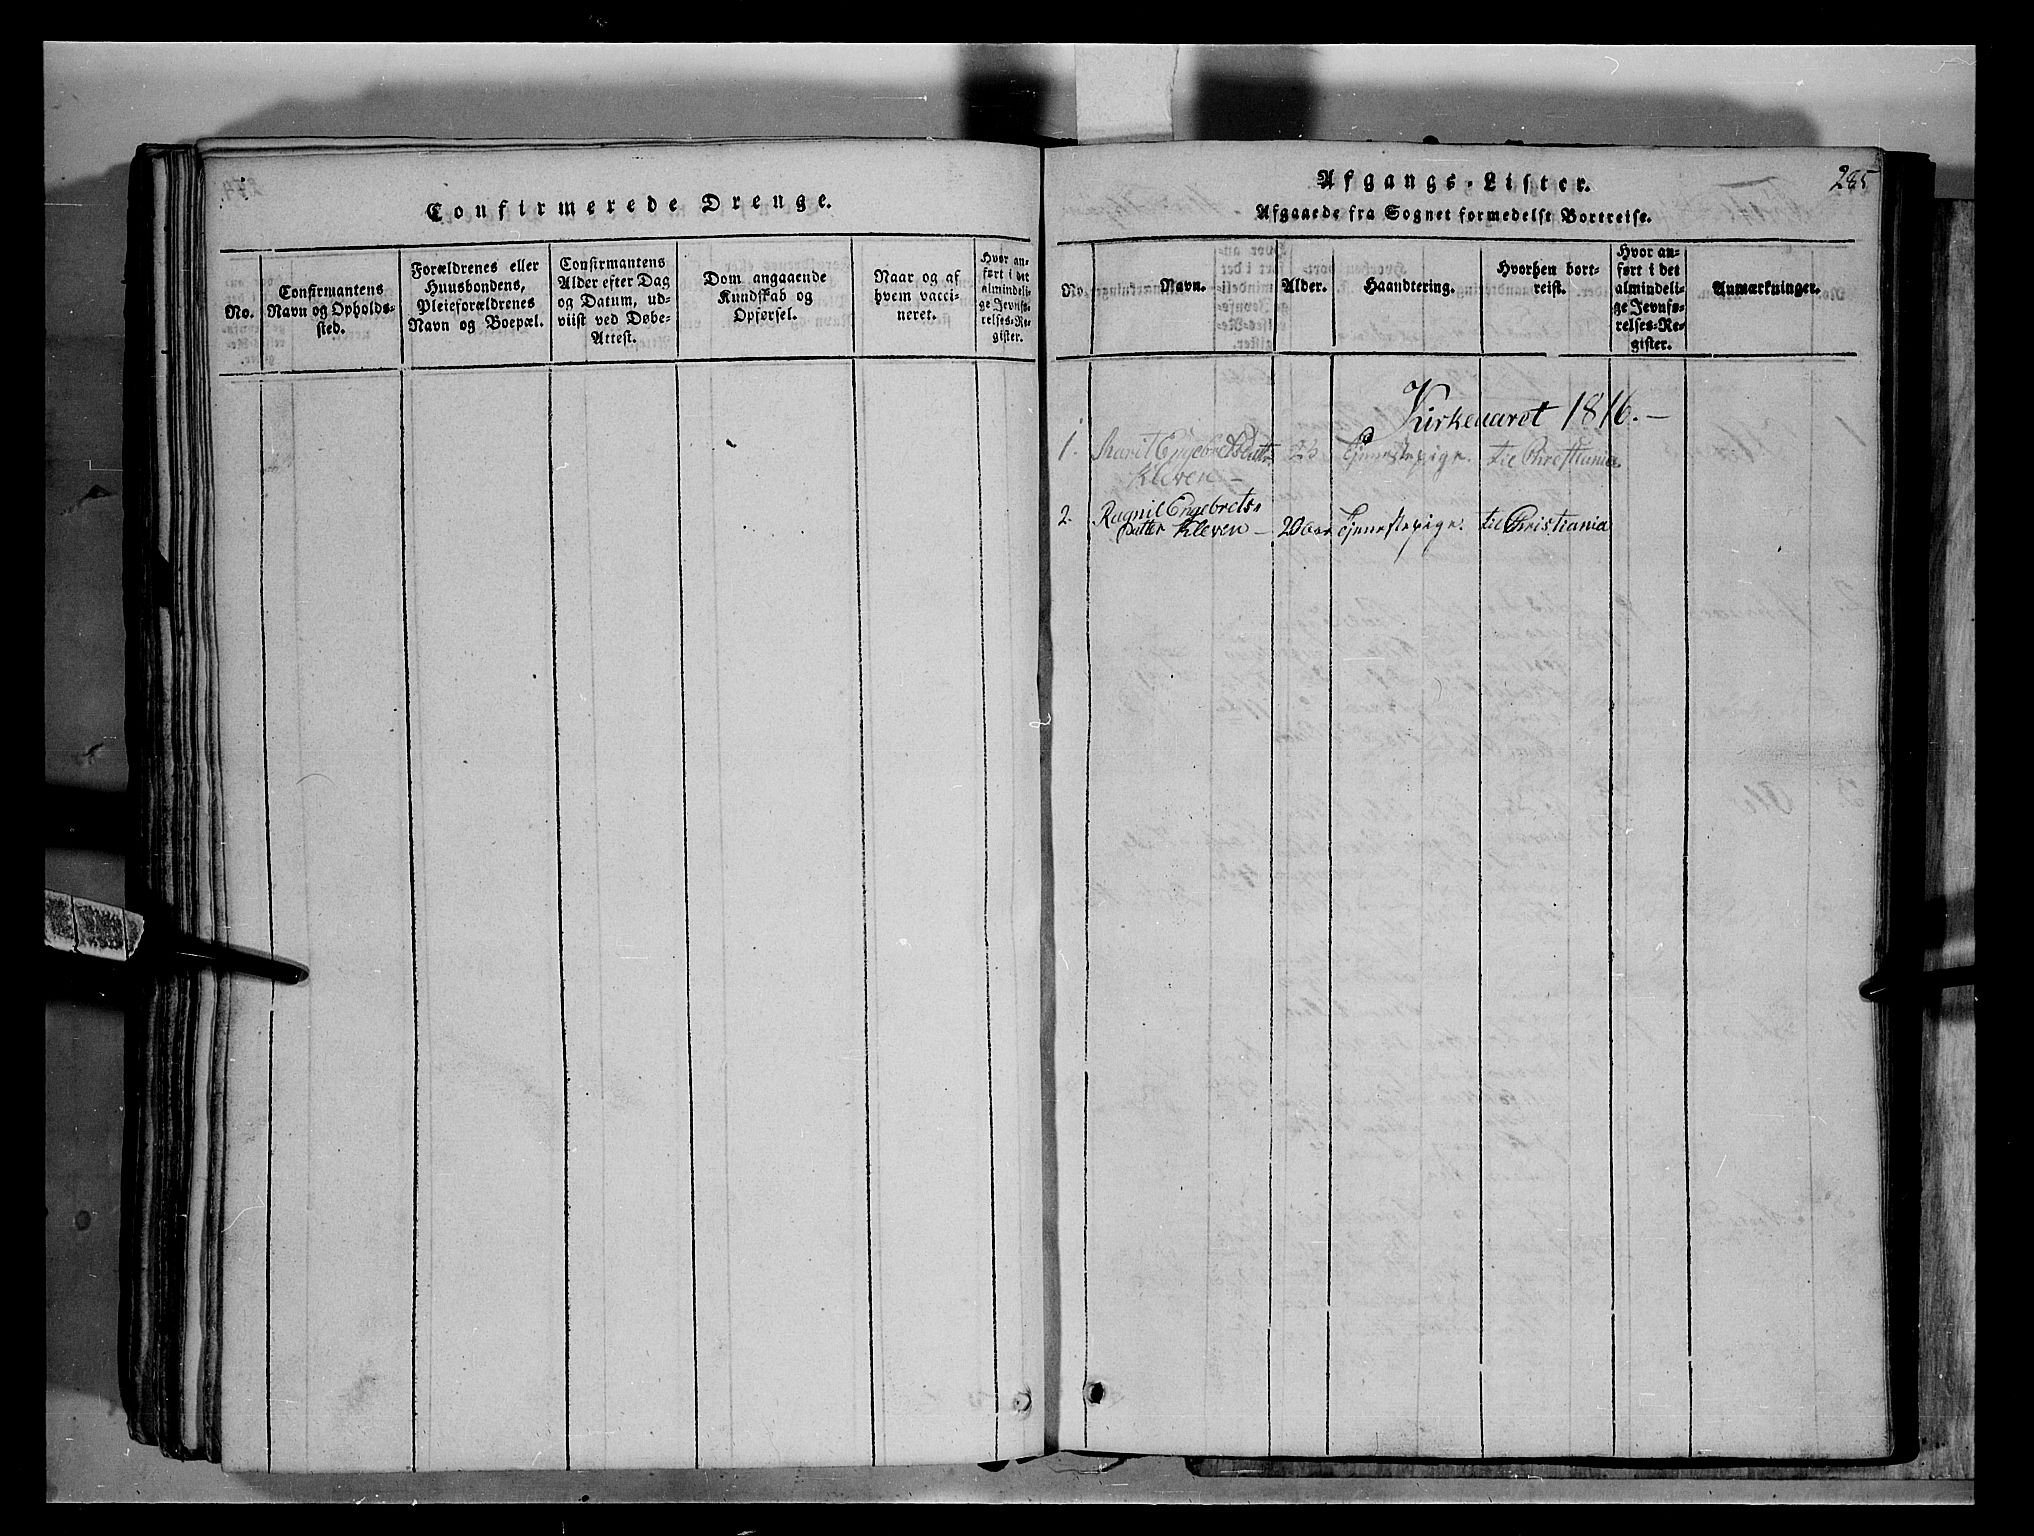 Confirmerede Drenge.
No.
Confirmantens
Navn og Opholds-
sted.
Forældrenes eller
Huusbondens,
Pleieforældrenes
Navn og Boepæl.
Confirmantens
Alder efter Dag
og Datum, ud-
viist ved Døbe-
Attest.
Dom angaaende
Kundskab og
Opførsel.
Naar og af
hvem vacci-
neret.
Hvor an-
ført i det
almindeli-
ge Jevnfø-
relses-Re-
gister.
285
Afgangs-Lister.
Afgaaede fra Sognet formedelst Bortreise.
No.
Navn.
Alder.
Haandtering.
Hvorhen bort-
reist.
Hvor an-
ført i det
almindeli-
ge Jevnfø-
relses-Re-
gister.
Anmærkninger.
Kirkeaaret 1816.-
1. Marit Engebretsdatter 23 Tjenestepige. til Christiania
Kleven -
2. Ragnil Engebrets-
datter Kleven - 20 aar Tjenestepige. til Christiania